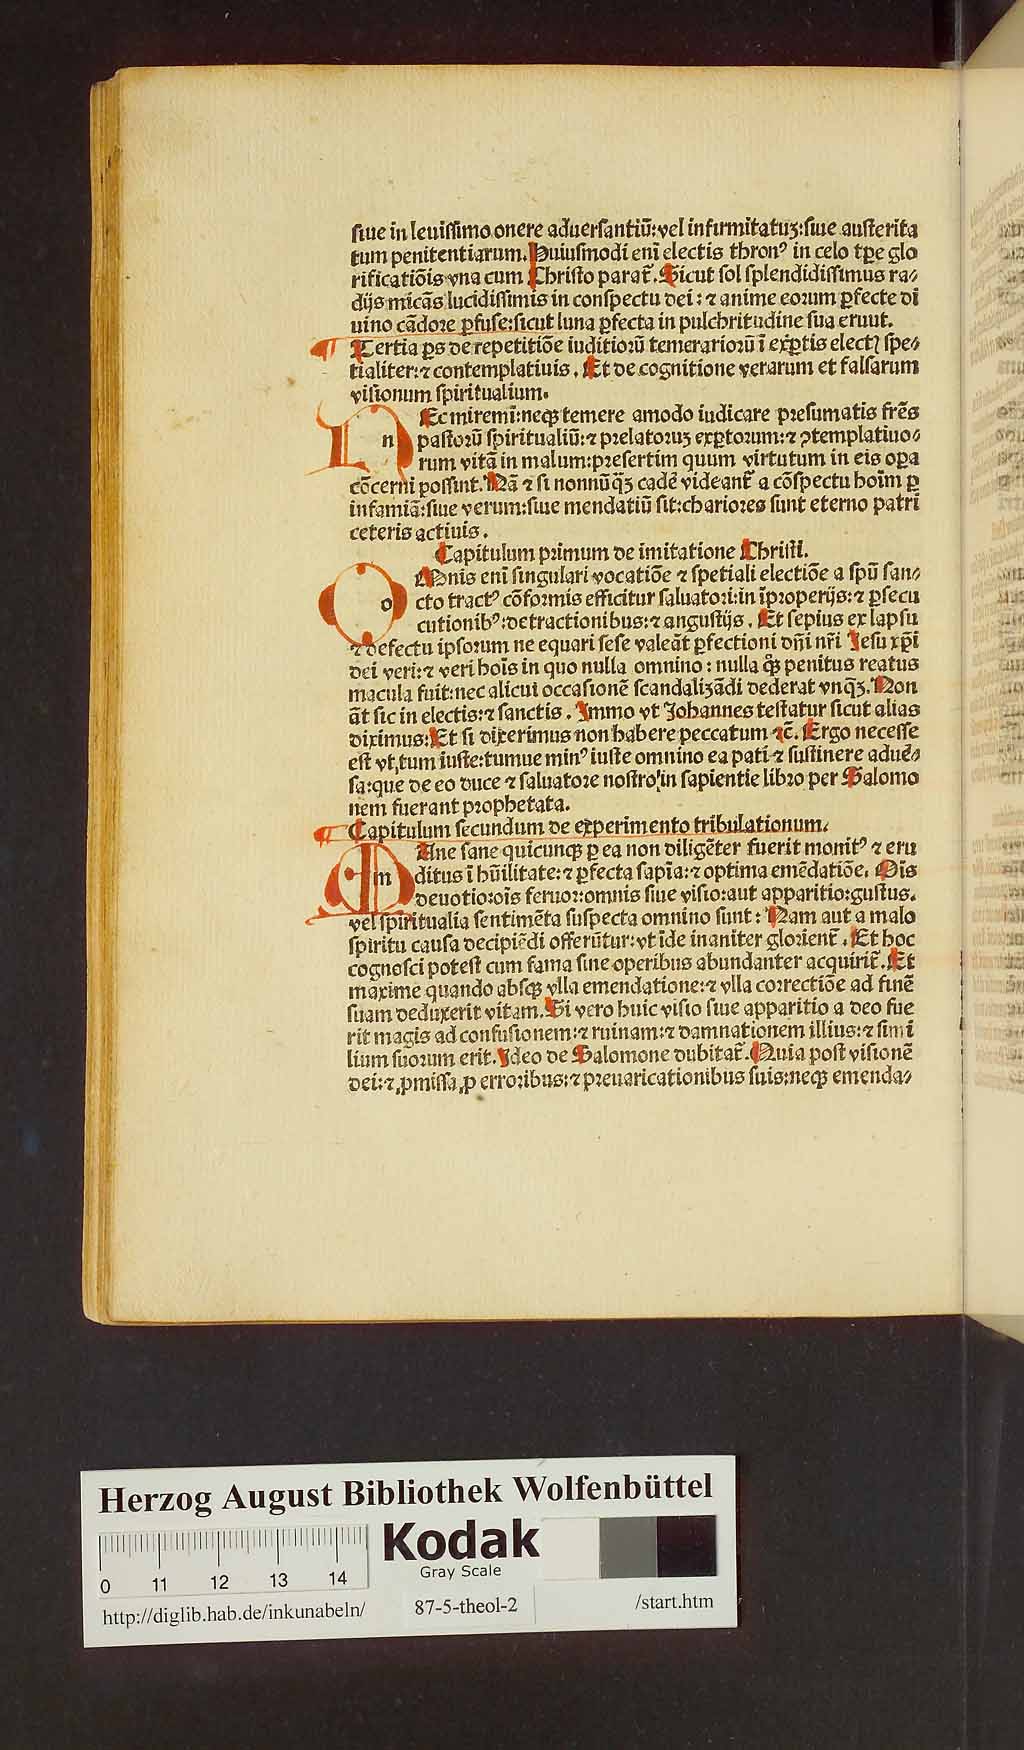 siue in leuissimo onere aduersantiū: vel infirmitatuꝫ: siue austerita
tum penitentiarum. Huiusmodi eni electis thronꝰ in celo tꝑe glo
rificatiōis vna cum Christo parat̄. Sicut sol splendidissimus ra⸗
dijs micās lucidissimis in conspectu dei: ⁊ anime eorum ꝑfecte di
uino cādore ꝑfuse: sicut luna ꝑfecta in pulchritudine sua erunt.
Tertia ꝑs de repetitiōe iuditiorū temerariorū ī exꝑtis elect spe⸗
tialiter: ⁊ contemplatiuis. Et de cognitione verarum et falsarum
visionum spiritualium.
n Ec miremī: neqꝫ temere amodo iudicare presumatis frēs
pastorū spiritualiū: ⁊ prelatoruꝫ exꝑtorum: ⁊ ꝯtemplatiuo⸗
rum vitā in malum: presertim quum virtutum in eis oꝑa
cōcerni possint. Nā ⁊ si nonnūqꝫ cadē videant̄ a cōspectu hoīm ꝑ
infamiā: siue verum: siue mendatiū sit: chariores sunt eterno patri
ceteris actiuis.
Capitulum primum de imitatione Christi.
o Mnis eni singulari vocatiōe ⁊ spetiali electiōe a spū san⸗
cto tractꝰ cōformis efficitur saluatori: in īproperijs: ⁊ ꝑsecu
cutionibꝰ: detractionibus: ⁊ angustijs. Et sepius ex lapsu
⁊ defectu ipsorum ne equari sese valeāt ꝑfectioni dn̄i nr̄i Jesu xp̄i
dei veri: ⁊ veri hois in quo nulla omnino: nulla qͣꝫ penitus reatus
macula fuit: nec alicui occasionē scandalizādi dederat vnqͣꝫ. Non
āt sic in electis: ⁊ sanctis. Immo vt Johannes testatur sicut alias
diximus: Et si dixerimus non habere peccatum ⁊c̄. Ergo necesse
est vt tum iuste: tumue minꝰ iuste omnino ea pati ⁊ sustinere aduē⸗
sa: que de eo duce ⁊ saluatore nostro in sapientie libro per Salomo
nem fuerant prophetata.
Capitulum secundum de experimento tribulationum.
m Ane sane quicunqꝫ ꝑ ea non diligēter fuerit monitꝰ ⁊ eru
ditus ī hūilitate: ⁊ ꝑfecta sapīa: ⁊ optima emēdatiōe. Ois
deuotio: oīs feruor: omnis siue visio: aut apparitio: gustus.
vel spiritualia sentimēta suspecta omnino sunt: Nam aut a malo
spiritu causa decipiēdi offerūtur: vt īde inaniter glorient̄. Et hoc
cognosci potest cum fama sine operibus abundanter acquirit̄. Et
maxime quando absqꝫ vlla emendatione: ⁊ vlla correctiōe ad finē
suam deduxerit vitam. Si vero huic visio siue apparitio a deo fue
rit magis ad confusionem: ⁊ ruinam: ⁊ damnationem illius: ⁊ simi
lium suorum erit. Ideo de Salomone dubitat̄. Quia post visionē
dei: ⁊ ꝓmissa ꝓ erroribus: ⁊ preuaricationibus suis: neqꝫ emenda⸗
Herzog August Bibliothek Wolfenbüttel
Kodak
Gray Scale
0 11 12 13 14
http://diglib.hab.de/inkunabeln/
87-5-theol-2
/start.htm